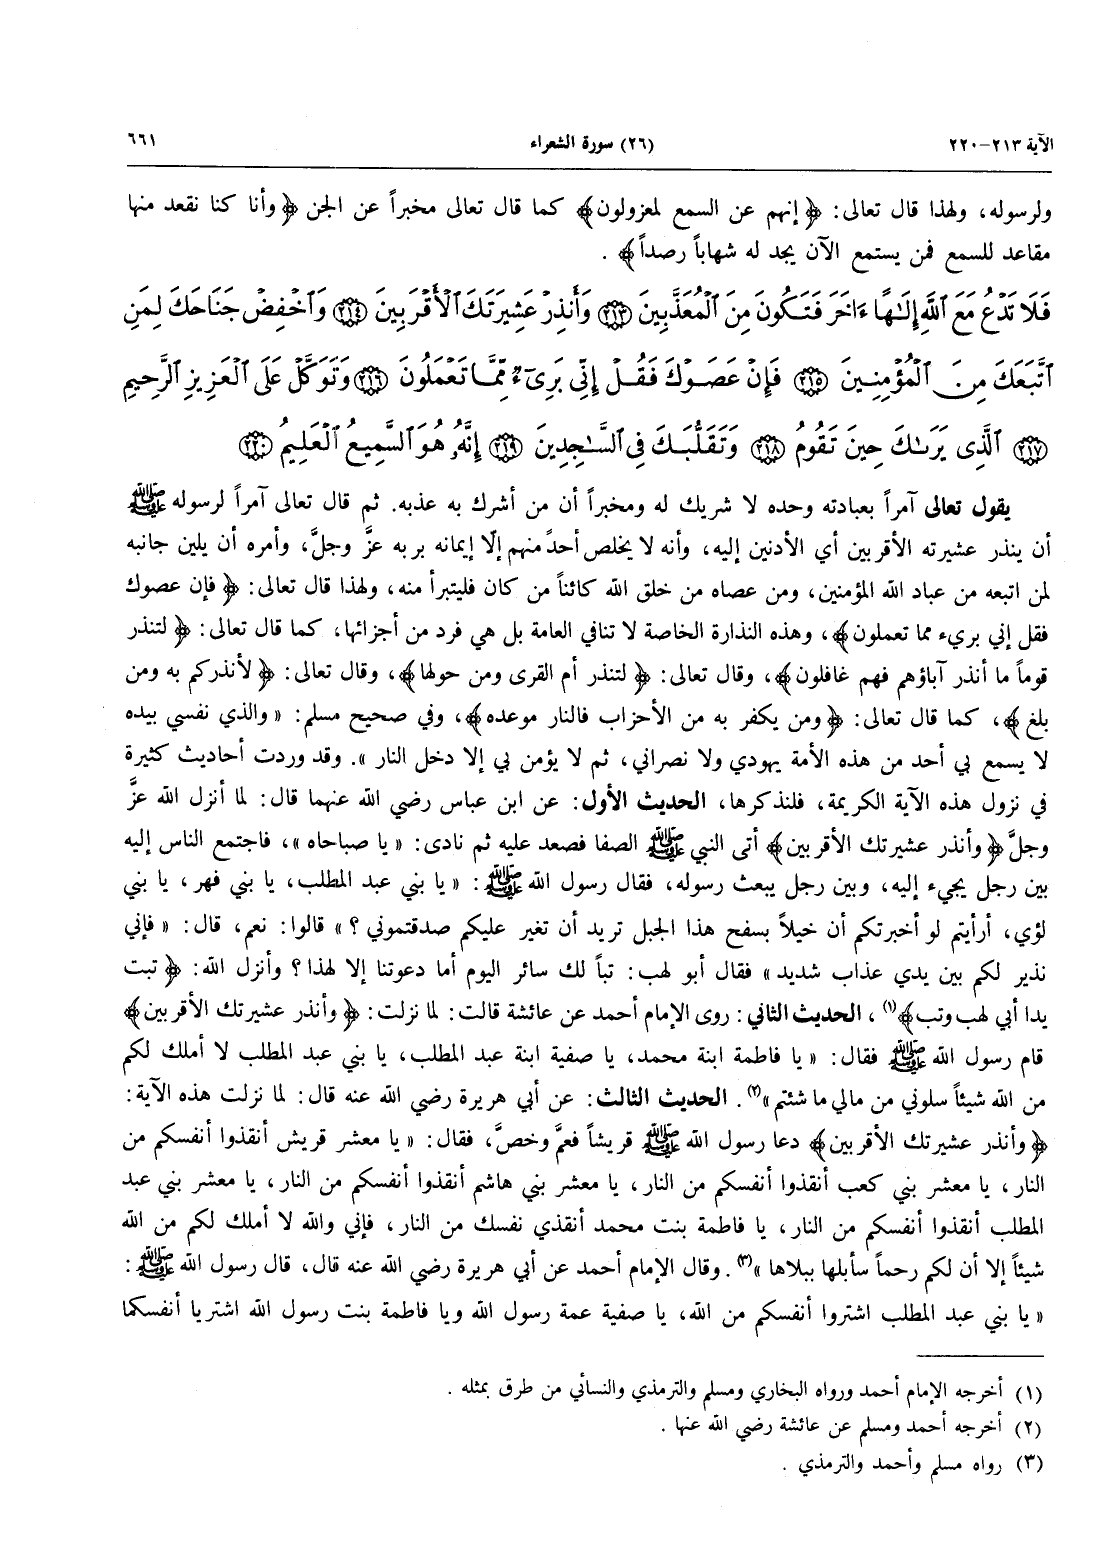 الآية ٢١٣-٢٢٠ (٢٦) سورة الشعراء ٦٦١
ولرسوله، ولهذا قال تعالى: ﴿إنهم عن السمع لمعزولون﴾ كما قال تعالى مخبراً عن الجن ﴿وأنا كنا نقعد منها
مقاعد للسمع فمن يستمع الآن يجد له شهاباً رصداً﴾ .
فَلَا تَدْعُ مَعَ ٱللَّهِ إِلَٰهًا ءَاخَرَ فَتَكُونَ مِنَ ٱلْمُعَذَّبِينَ ٢١٣ وَأَنذِرْ عَشِيرَتَكَ ٱلْأَقْرَبِينَ ٢١٤ وَٱخْفِضْ جَنَاحَكَ لِمَنِ
ٱتَّبَعَكَ مِنَ ٱلْمُؤْمِنِينَ ٢١٥ فَإِنْ عَصَوْكَ فَقُلْ إِنِّى بَرِىٓءٌ مِّمَّا تَعْمَلُونَ ٢١٦ وَتَوَكَّلْ عَلَى ٱلْعَزِيزِ ٱلرَّحِيمِ
٢١٧ ٱلَّذِى يَرَىٰكَ حِينَ تَقُومُ ٢١٨ وَتَقَلُّبَكَ فِى ٱلسَّٰجِدِينَ ٢١٩ إِنَّهُۥ هُوَ ٱلسَّمِيعُ ٱلْعَلِيمُ ٢٢٠
يقول تعالى آمراً بعبادته وحده لا شريك له ومخبراً أن من أشرك به عذبه. ثم قال تعالى آمراً لرسوله ﷺ
أن ينذر عشيرته الأقربين أي الأدنين إليه، وأنه لا يخلص أحدً منهم إلّا إيمانه بربه عزَّ وجلَّ، وأمره أن يلين جانبه
لمن اتبعه من عباد الله المؤمنين، ومن عصاه من خلق الله كائناً من كان فليتبرأ منه، ولهذا قال تعالى: ﴿فإن عصوك
فقل إني بريء مما تعملون﴾، وهذه النذارة الخاصة لا تنافي العامة بل هي فرد من أجزائها، كما قال تعالى: ﴿لتنذر
قوماً ما أنذر آباؤهم فهم غافلون﴾، وقال تعالى: ﴿لتنذر أم القرى ومن حولها﴾، وقال تعالى: ﴿لأنذركم به ومن
بلغ﴾، كما قال تعالى: ﴿ومن يكفر به من الأحزاب فالنار موعده﴾، وفي صحيح مسلم: «والذي نفسي بيده
لا يسمع بي أحد من هذه الأمة يهودي ولا نصراني، ثم لا يؤمن بي إلا دخل النار». وقد وردت أحاديث كثيرة
في نزول هذه الآية الكريمة، فلنذكرها، الحديث الأول: عن ابن عباس رضي الله عنهما قال: لما أنزل الله عزَّ
وجلَّ ﴿وأنذر عشيرتك الأقربين﴾ أتى النبي ﷺ الصفا فصعد عليه ثم نادى: «يا صباحاه»، فاجتمع الناس إليه
بين رجل يجيء إليه، وبين رجل يبعث رسوله، فقال رسول الله ﷺ: «يا بني عبد المطلب، يا بني فهر، يا بني
لؤي، أرأيتم لو أخبرتكم أن خيلاً بسفح هذا الجبل تريد أن تغير عليكم صدقتموني؟» قالوا: نعم، قال: «فإني
نذير لكم بين يدي عذاب شديد» فقال أبو لهب: تباً لك سائر اليوم أما دعوتنا إلا لهذا؟ وأنزل الله: ﴿تبت
يدا أبي لهب وتب﴾(١)، الحديث الثاني: روى الإمام أحمد عن عائشة قالت: لما نزلت: ﴿وأنذر عشيرتك الأقربين﴾
قام رسول الله ﷺ فقال: «يا فاطمة ابنة محمد، يا صفية ابنة عبد المطلب، يا بني عبد المطلب لا أملك لكم
من الله شيئاً سلوني من مالي ما شئتم»(٢). الحديث الثالث: عن أبي هريرة رضي الله عنه قال: لما نزلت هذه الآية:
﴿وأنذر عشيرتك الأقربين﴾ دعا رسول الله ﷺ قريشاً فعمَّ وخصَّ، فقال: «يا معشر قريش أنقذوا أنفسكم من
النار، يا معشر بني كعب أنقذوا أنفسكم من النار، يا معشر بني هاشم أنقذوا أنفسكم من النار، يا معشر بني عبد
المطلب أنقذوا أنفسكم من النار، يا فاطمة بنت محمد أنقذي نفسك من النار، فإني والله لا أملك لكم من الله
شيئاً إلا أن لكم رحماً سأبلها ببلاها»(٣). وقال الإمام أحمد عن أبي هريرة رضي الله عنه قال، قال رسول الله ﷺ:
«يا بني عبد المطلب اشتروا أنفسكم من الله، يا صفية عمة رسول الله ويا فاطمة بنت رسول الله اشتريا أنفسكما
(١) أخرجه الإمام أحمد ورواه البخاري ومسلم والترمذي والنسائي من طرق بمثله .
(٢) أخرجه أحمد ومسلم عن عائشة رضي الله عنها .
(٣) رواه مسلم وأحمد والترمذي .